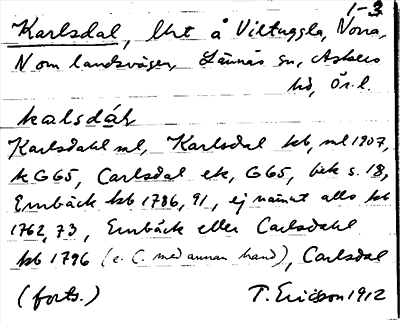 1-3
Karlsdal, lht å Viltuggla, Norra,
N om landsvägen, Lännäs sn, Askers
hd, Ör. l.
kalsdáh
Karlsdahl ml, Karlsdal kb, ml 1907,
k G65, Carlsdal ek, G65, bek s. 18,
Embäck kb 1786, 91, ej nämnt alls kb
1762, 73, Embäck eller Carlsdahl
kb 1796 (e. C. med annan hand), Carlsdal
(forts.) T. Ericsson 1912